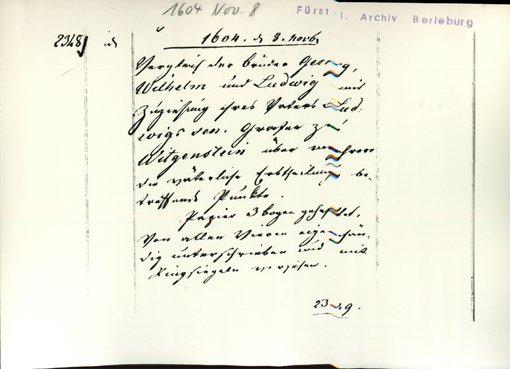 1604 Nov. 8
Fürstl. Archiv Berleburg
2348) id
1604. d. 8. Novb.
Vergleich der brüder Georg,
Wilhelm und Ludwig mit
Zuziehung ihres Vaters Lud-
wigs sen. Grafen zu
Witgenstein über mehrere
die väterliche Erbtheilung be-
treffende Punkte.
Papier 3 bogen geheftet.
Von allen Vieren eigenhän-
dig unterschrieben und mit
Ringsiegeln versehen.